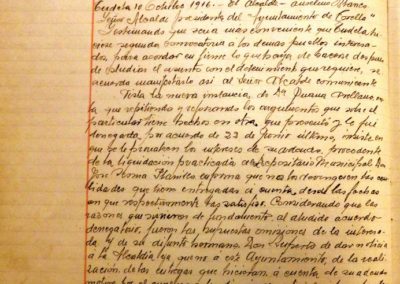 Tudela 10 Octubre 1916.- El Alcalde - Aurelio Blanco
Señor Alcalde presidente del Ayuntamiento de Corella."
Estimando que seria mas conveniente que Tudela, hi-
ciese segunda convocatoria a los demas pueblos interesa-
dos, para acordar en firme lo que haya de hacerse des pues
de estudiar el asunto con el detenimiento que requiere, se
acuerda manifestarlo asi al Señor Alcalde comunicante
Vista la nueva instancia, de Dª Juana Arellano, en
la que repitiendo y reforzando los argumentos que sobre el
particular tiene hechos en otra que presentó y le fué
denegada por acuerdo de 22 de Junio último, insiste en
que se le procuren los intereses de su adeudo, procedente
de la liquidación practicada al Depositario Municipal Don
José Roma en forma que no los devenguen las can-
tidades que tiene entregadas á cuenta, desde las fechas
en que respectivamente las satisfizo. Considerando que las
razones que sirvieron de fundamento al aludido acuerdo
denegatorio, fueron las supuestas omisiones de la interesa-
da y de su difunto hermano Don Ruperto de dar noticia
a la Alcaldía, ya que no á este Ayuntamiento, de la reali-
zación de las entregas que hicieran á cuenta de su adeudo